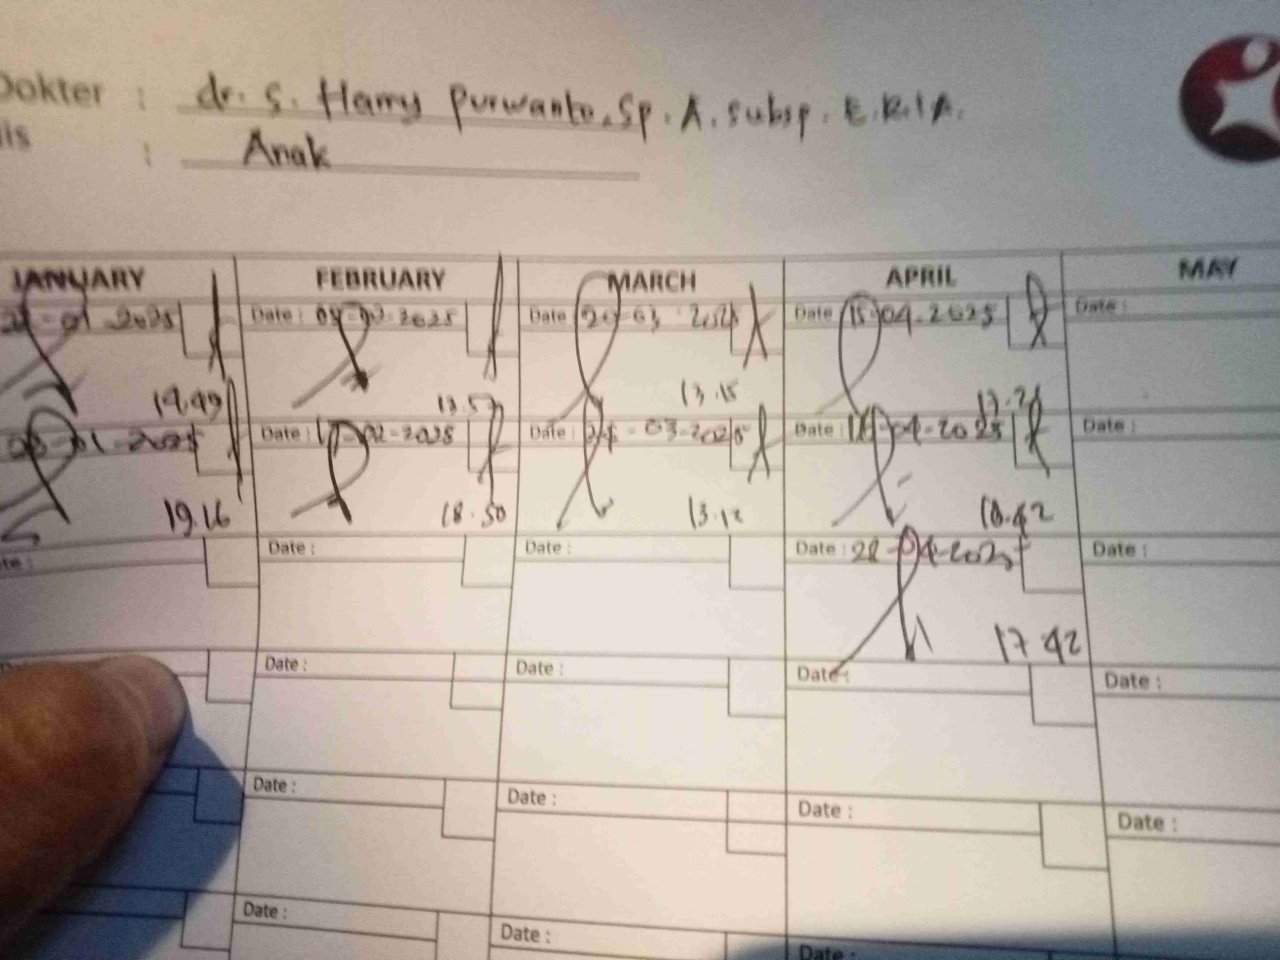 Dokter : dr. S. Harry Purwanto, Sp. A. subsp. E.R.I.A.
: Anak
JANUARY FEBRUARY MARCH APRIL MAY
-01-2025 Date : -02-2025 Date 20-03-2025 Date 15-04-2025 Date :
19.49 13.57 13.15
-01-2025 Date : -02-2025 Date : -03-2025 Date : -04-2025 Date :
19.16 18.50 13.12 18.42
Date : Date : Date : 22-04-2025 Date :
17.42
Date : Date : Date : Date :
Date : Date : Date : Date :
Date : Date : Date :